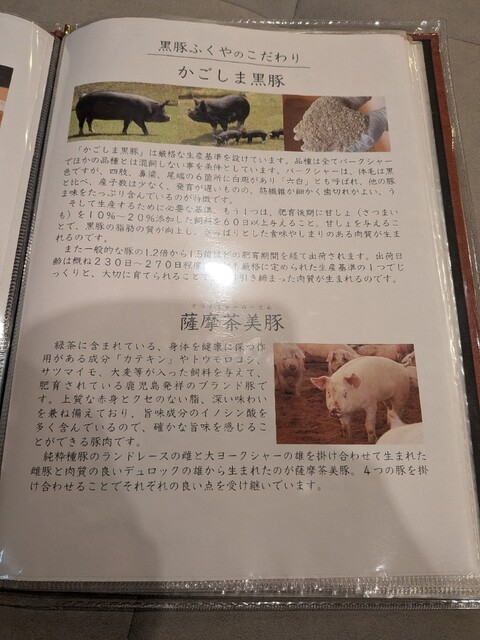 黒豚ふくやのこだわり
かごしま黒豚
「かごしま黒豚」は厳格な生産基準を設けています。品種は全てバークシャー
でほかの品種とは混飼しない事を条件としています。バークシャーは、体毛は黒
色ですが、四肢、鼻梁、尾端の6箇所に白斑があり「六白」とも呼ばれ、他の豚
と比べ、産子数は少なく、発育が遅いものの、筋繊維が細かく歯切れがよい、う
ま味をたっぷり含んでいるのが特徴です。
そして生産するために必要な基準、もう1つは、肥育後期に甘しょ（さつまい
も）を10％～20％添加した飼料を60日以上与えること。甘しょを与えるこ
とで、黒豚の脂肪の質が向上し、さっぱりとした食味やしまりのある肉質が生ま
れるのです。
また一般的な豚の1.2倍から1.5倍ほどの肥育期間を経て出荷されます。出荷日
齢は概ね230日～270日程度 も厳格に定められた生産基準の1つでじ
っくりと、大切に育てられることで 引き締まった肉質が生まれるのです。
薩摩茶美豚
緑茶に含まれている、身体を健康に保つ作
用がある成分「カテキン」やトウモロコシ、
サツマイモ、大麦等が入った飼料を与えて、
肥育されている鹿児島発祥のブランド豚で
す。上質な赤身とクセのない脂、深い味わい
を兼ね備えており、旨味成分のイノシン酸を
多く含んでいるので、確かな旨味を感じるこ
とができる豚肉です。
純粋種豚のランドレースの雌と大ヨークシャーの雄を掛け合わせて生まれた
雌豚と肉質の良いデュロックの雄から生まれたのが薩摩茶美豚。4つの豚を掛
け合わせることでそれぞれの良い点を受け継いでいます。